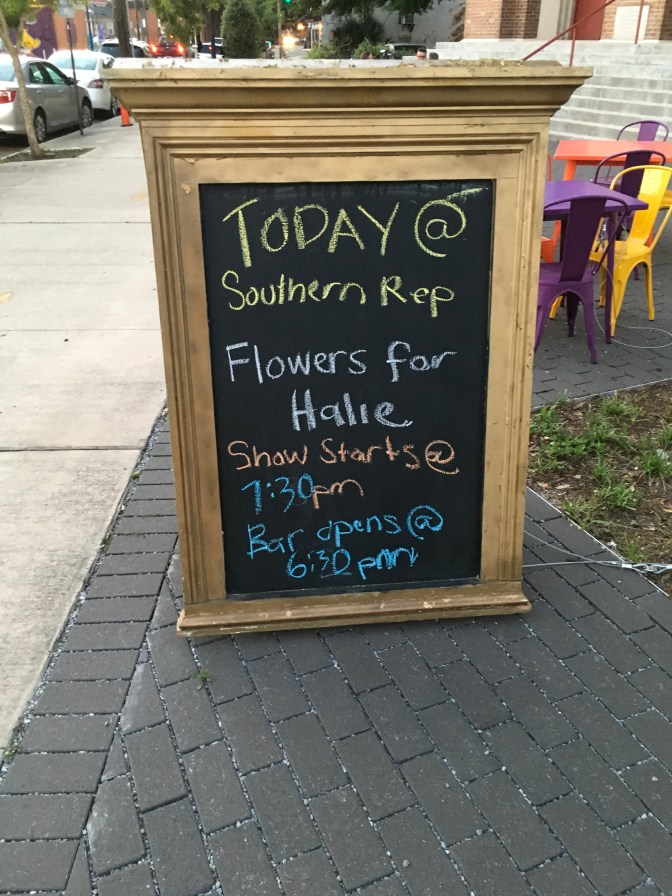 TODAY @
Southern Rep
Flowers for
Halie
Show Starts @
7:30pm
Bar opens @
6:30 pm